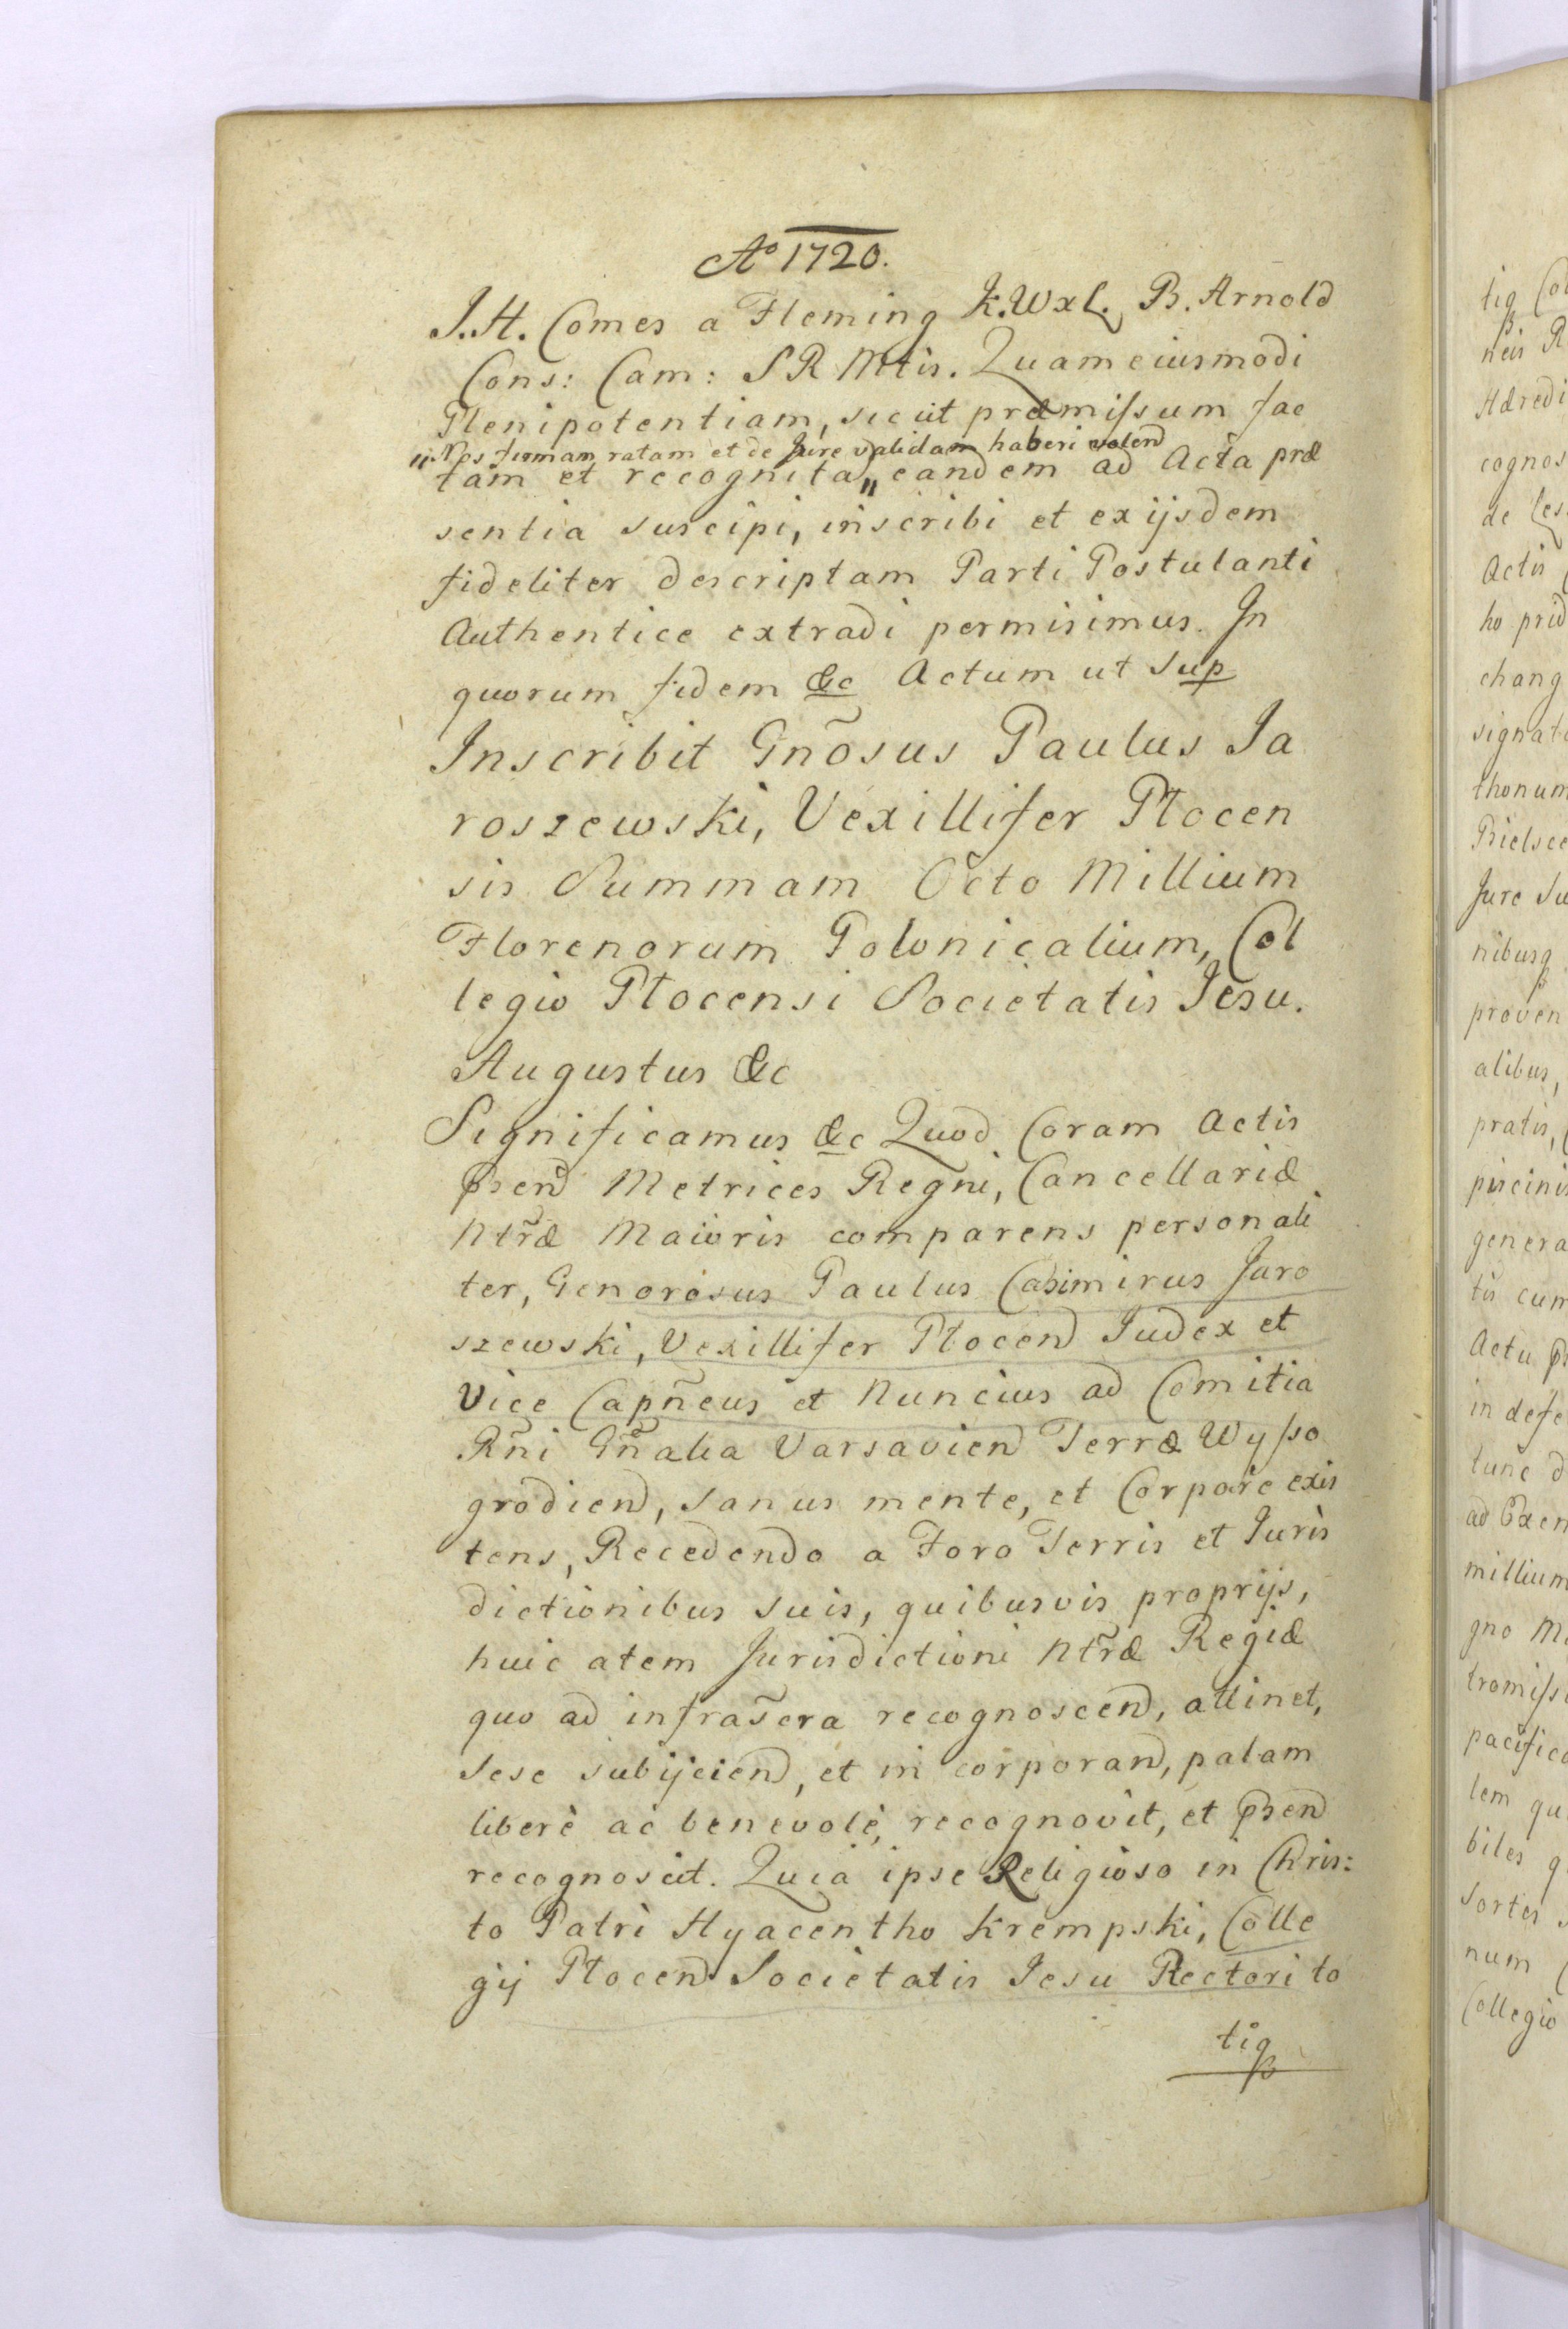 Aº 1720.
J. H. Comes a Fleming K. Wxl. B. Arnold
Cons: Cam: S R Mtis. Quam eiusmodi
Plenipotentiam, sicut præmissum fac
„Nos firmam ratam et de Jure validam haberi volend
tam et recognita„ eandem ad Acta præ
sentia suscipi, inscribi et exijsdem
fideliter descriptam Parti Postulanti
Authentice extradi permisimus. In
quorum fidem &c Actum ut Sup
Inscribit Gñosus Paulus Ja
roszewski, Vexillifer Plocen
sis Summam Octo Millium
Florenorum Polonicalium, Col
legio Plocensi Societatis Jesu.
Augustus &c
Significamus &c Quod Coram Actis
p̄send Metrices Regni, Cancellariæ
Ntr̃æ Maioris comparens personali
ter, Generosus Paulus Casimirus Jaro
szewski, Vexillifer Plocend Judex et
Vice Capñeus et Nuncius ad Comitia
Rñi Gñalia Varsaviend Terræ Wysso
grodiend, sanus mente, et Corpore exis
tens, Recedendo a Foro Terris et Juris
dictionibus suis, quibusvis proprijs,
huic atem Jurisdictioni Ntr̃æ Regiæ
quo ad infras̃cra recognoscend, attinet,
sese subijciend, et in corporand, palam
liberè ac benevolè, recognovit, et p̄send
recognoscit. Quia ipse Religioso in Chris:
to Patri Hyacentho Krempski, Colle
gij Plocend Societatis Jesu Rectori to
tiq̃
tiq̃ Col
neis R
Hæredi
cognos
de Les
Actis
ho prid
chang
signat
thonum
Bielsce
Jure Su
nibusq̃
proven
alibus,
pratis,
piscinis
genera
tis cum
Actu
in defe
tunc d
ad Exen
millium
gno M
tromiss
pacifica
lem qu
biles q
Sortes
num
Collegio